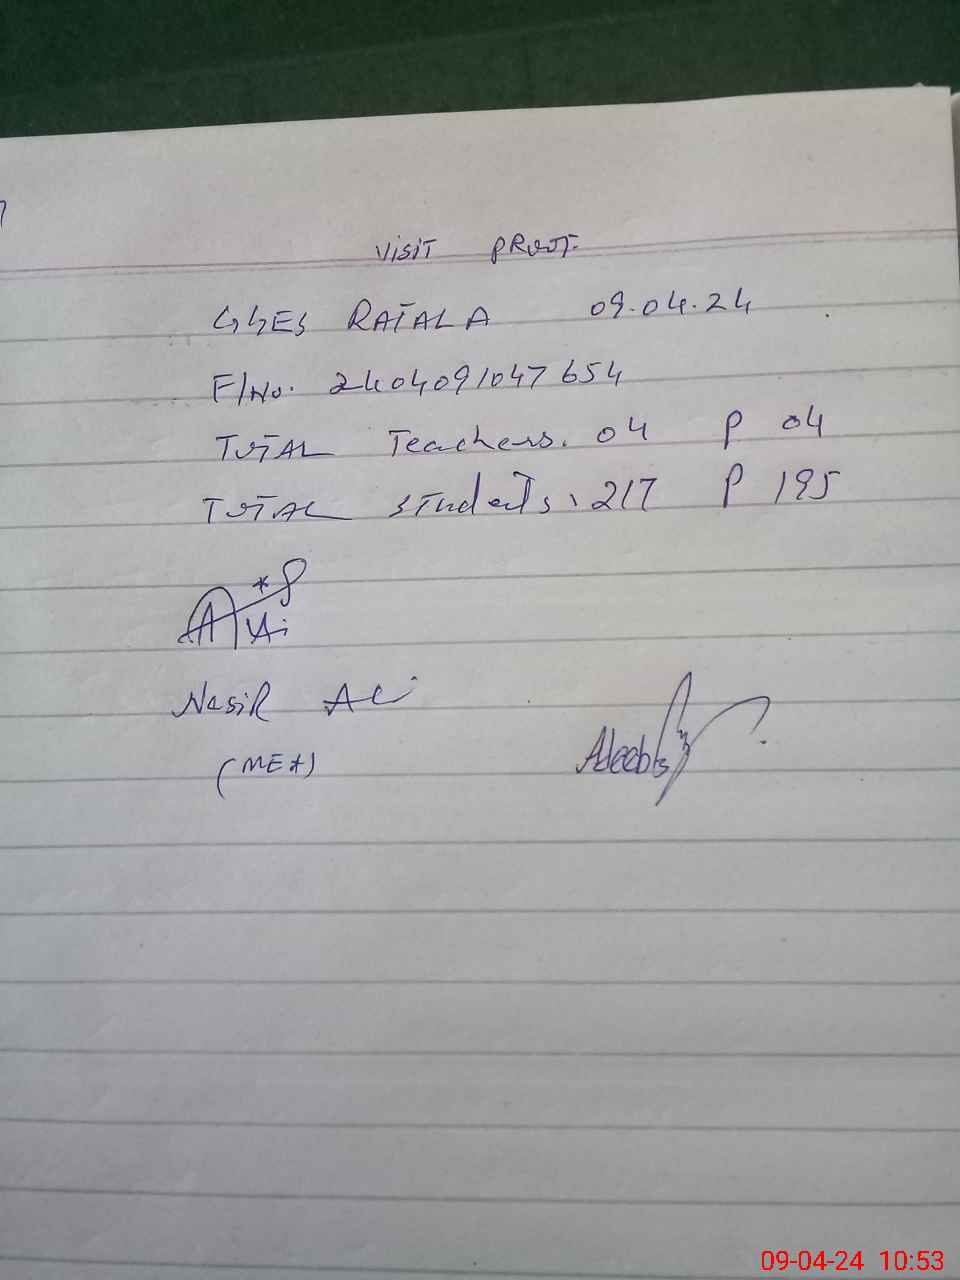 VISIT PROOF.
GGES RATALA 09.04.24
F/No. 2404091047654
TOTAL Teachers. 04 P 04
TOTAL students. 217 P 195
Nasir Ali
(MEA)
Adeeba
09-04-24 10:53